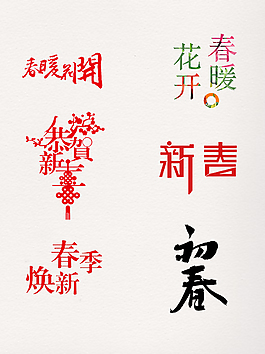 春暖花開
春暖
花开
恭賀
新
新春
春季
焕新
初春